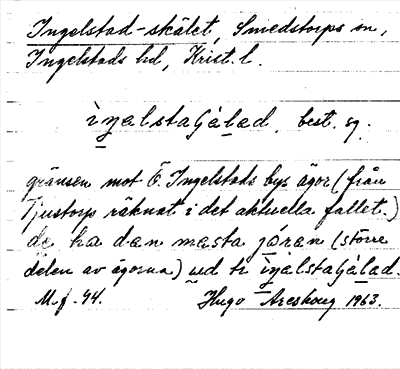 Ingelstad-skälet, Smedstorps sn,
Ingelstads hd, Krist. l.
ìŋalstaʃàlad, best. sg.
gränsen mot Ö. Ingelstads bys ägor (från
Tjustorp räknat i det aktuella fallet.)
de ha dan mesta jóran (större
delen av ägorna) ud ti ìŋalstaʃàlad.
M. f. 44. Hugo Areskoug 1963.